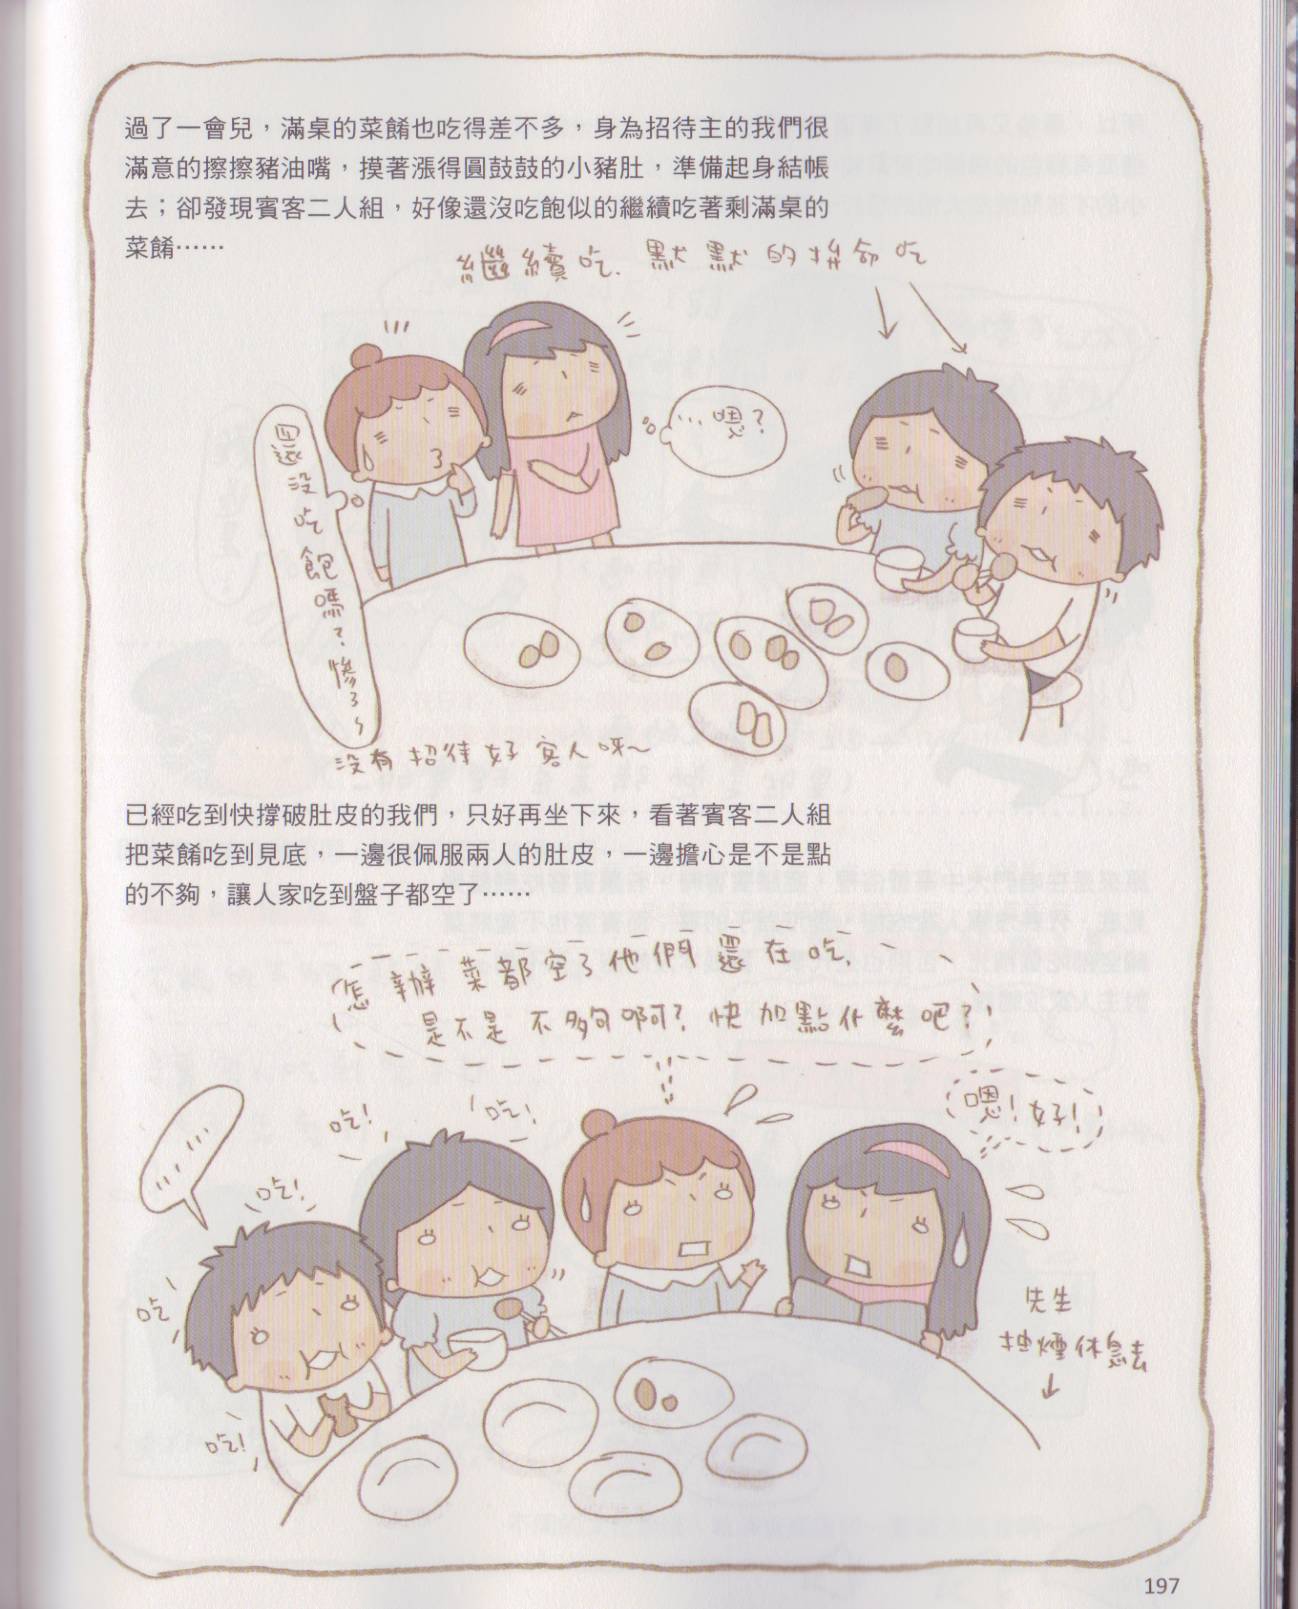 過了一會兒，滿桌的菜餚也吃得差不多，身為招待主的我們很
滿意的擦擦豬油嘴，摸著漲得圓鼓鼓的小豬肚，準備起身結帳
去；卻發現賓客二人組，好像還沒吃飽似的繼續吃著剩滿桌的
菜餚⋯⋯
繼續吃. 默默的拚命吃
還沒吃飽嗎？慘了~
…嗯？
沒有招待好客人呀~
已經吃到快撐破肚皮的我們，只好再坐下來，看著賓客二人組
把菜餚吃到見底，一邊很佩服兩人的肚皮，一邊擔心是不是點
的不夠，讓人家吃到盤子都空了⋯⋯
怎辦菜都空了他們還在吃.
是不是不夠啊？快加點什麼吧？
嗯！好！
吃！
吃！
吃！
吃！
吃！
先生
抽煙休息去
197